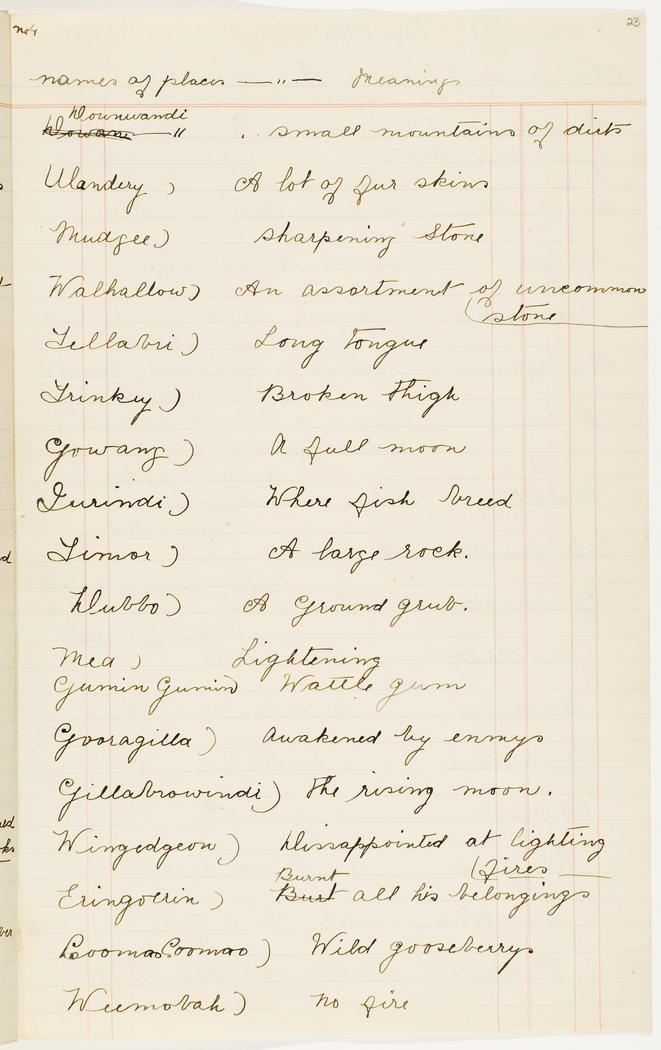 no 4
23
names of places — " — Meanings
Dounwandi
Dowan — " . . small mountains of dirts
Ulandery ) A lot of fur skins
Mudgee ) sharpening Stone
Walhallow ) An assortment of uncommon
( stone
Tellabri ) Long Tongue
Trinkey ) Broken Thigh
Gowang ) A full moon
Durindi ) Where fish breed
Timor ) A large rock.
Dubbo ) A Ground grub.
Mea ) Lightening
Gumin Gumin ) Wattle gum
Gooragilla ) Awakened by enmys
Gillabrowindi ) The rising moon.
Wingedgeon ) Dissappointed at lighting
( fires —
Burnt
Eringoerin ) Burt all his belongings
Cooma Coomoo ) Wild gooseberrys
Weemobah ) No fire